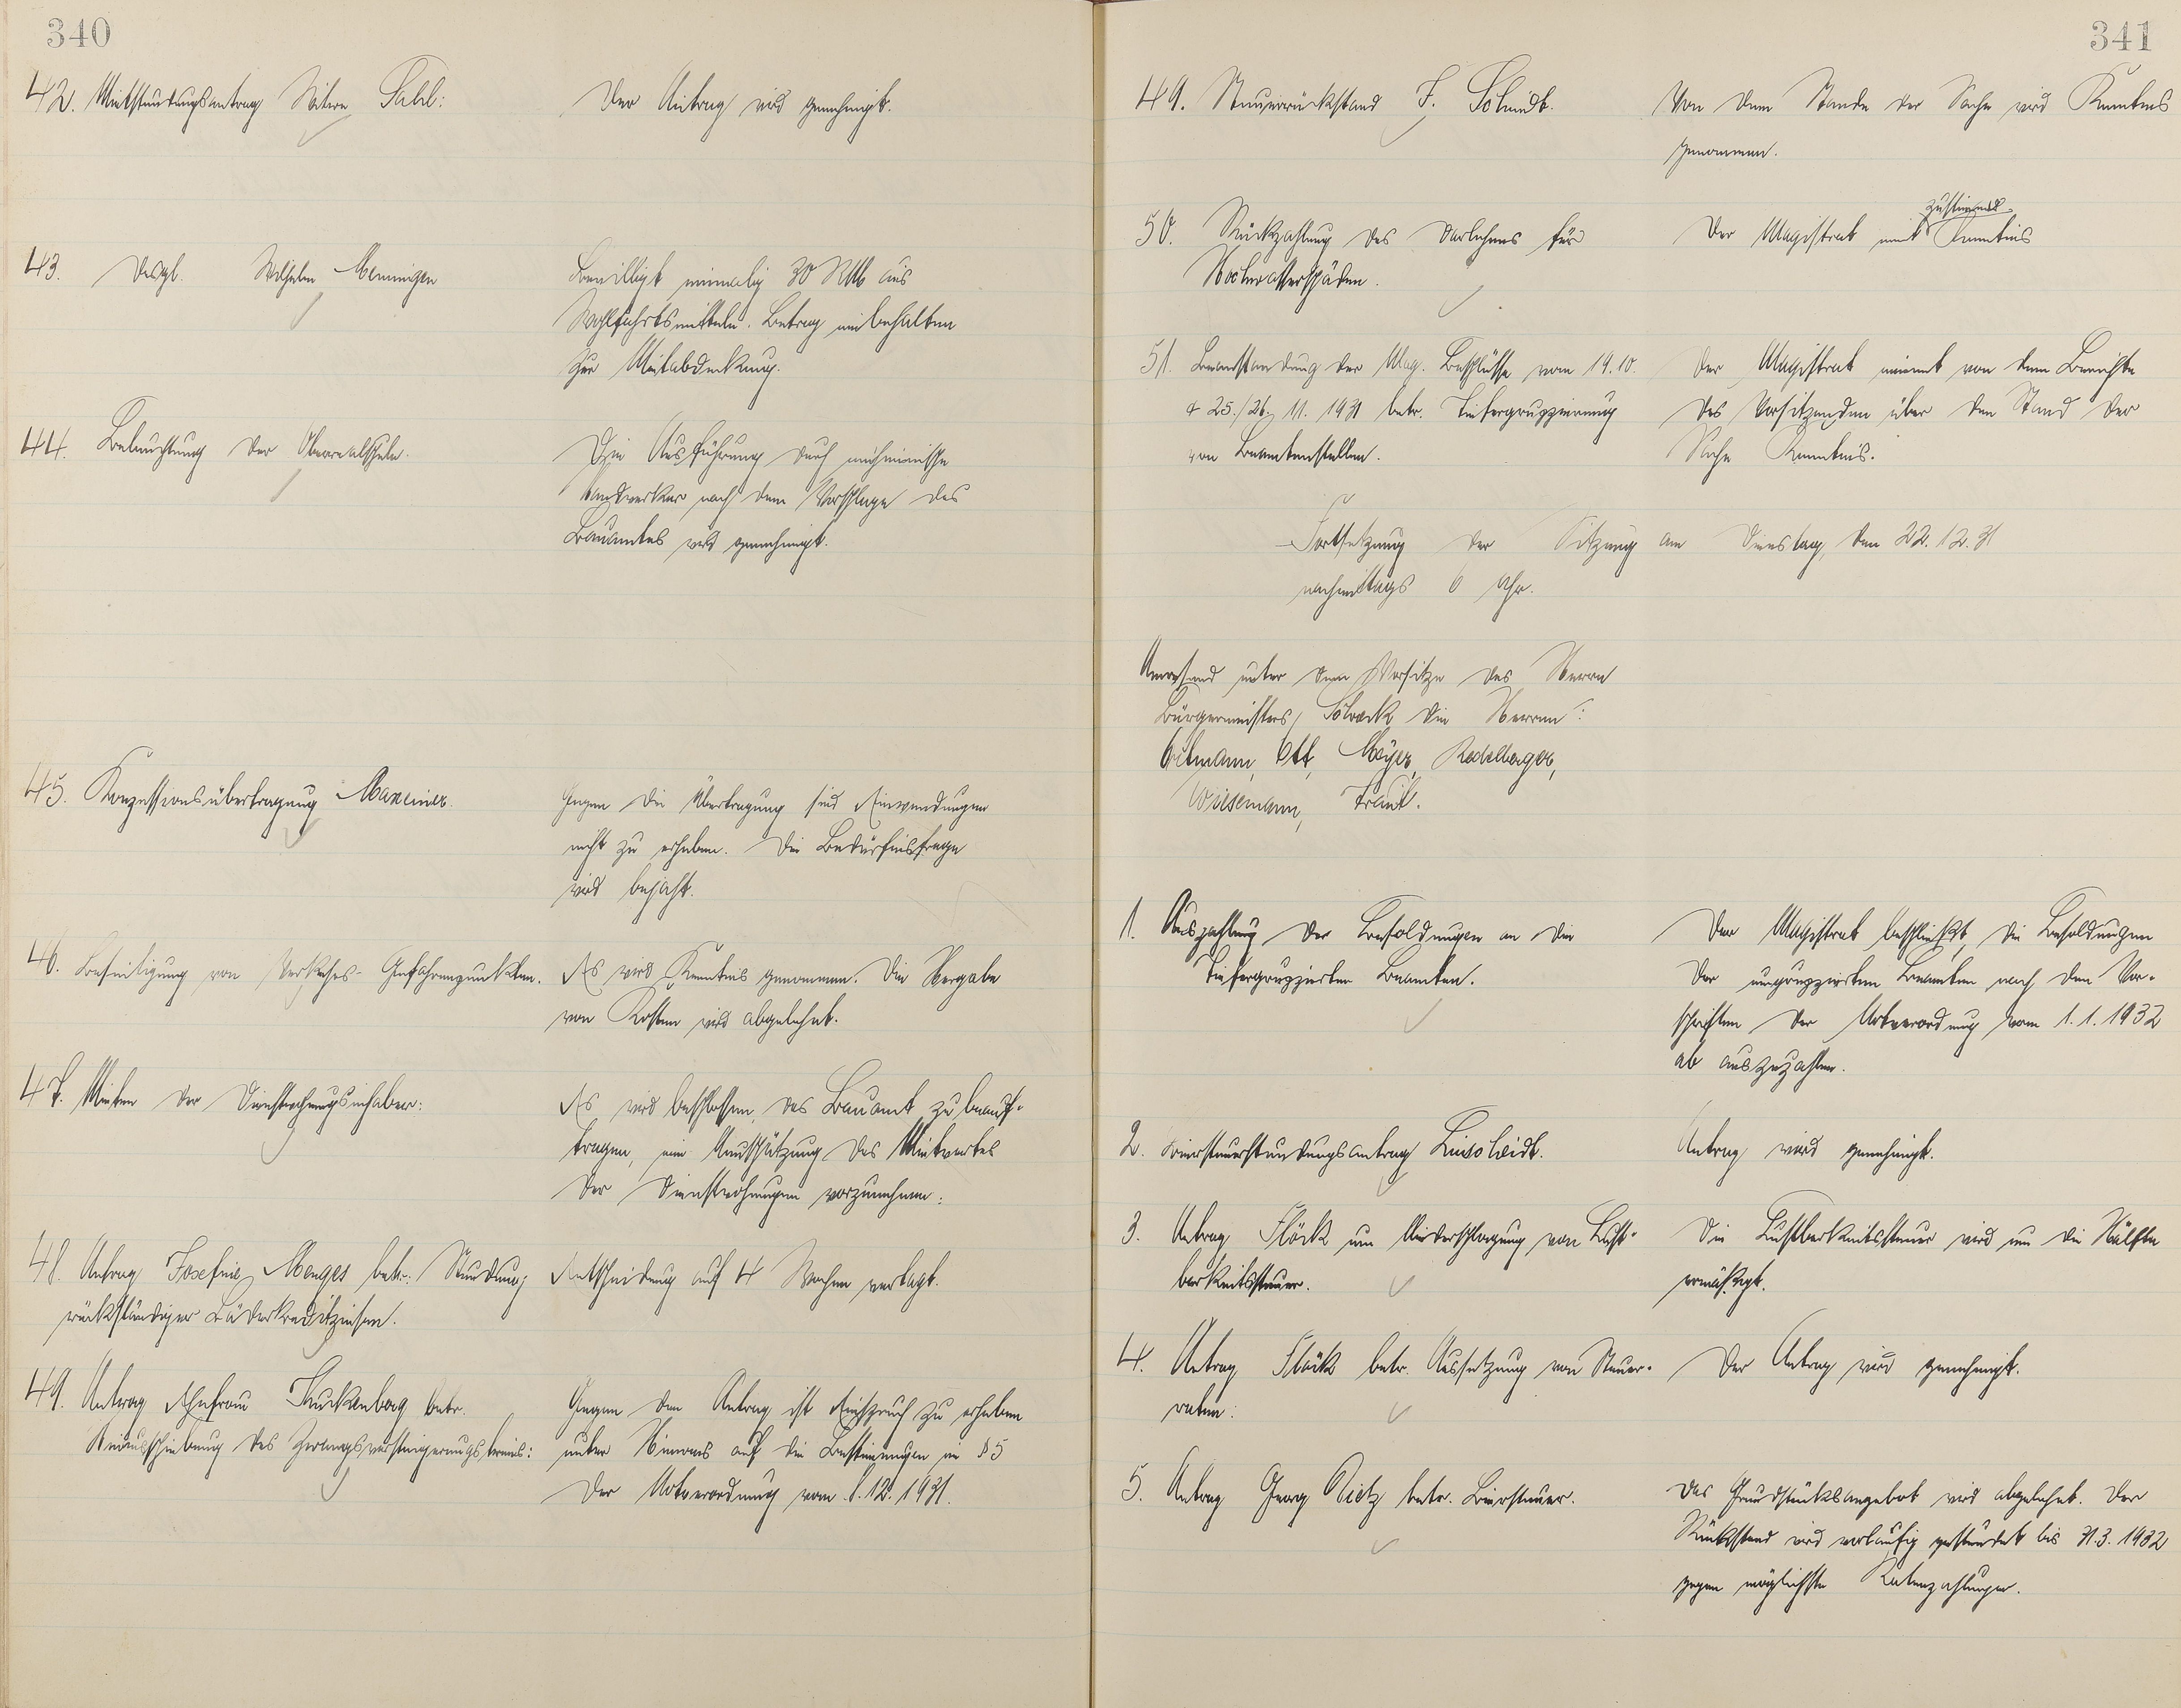 340
42. Mietstundungsantrag Witwe Pabel:
Der Antrag wird genehmigt.
43. desgl. Wilhelm Menningen
Bewilligt einmalig 30 RM aus
Wohlfahrtsmitteln. Betrag einbehalten
zur Mietabdeckung.
44. Beleuchtung der Oberrealschule.
Die Ausführung durch einheimische
Handwerker nach dem Vorschlage des
Bauamtes wird genehmigt.
45. Konzessionsübertragung Maxeiner.
Gegen die Übertragung sind Einwendungen
nicht zu erheben. Die Bedürfnisfrage
wird bejaht.
46. Beseitigung von Verkehrs-Gefahrenpunkten.
Es wird Kenntnis genommen. Die Hergabe
von Kosten wird abgelehnt.
47. Mieten der Dienstwohnungsinhaber:
Es wird beschlossen, das Bauamt zu beauf-
tragen, eine Neuschätzung des Mietwertes
der Dienstwohnungen vorzunehmen:
48. Antrag Josefine Menges betr: Stundung
rückständiger Bäderkreditzinsen.
Entscheidung auf 4 Wochen vertagt.
49. Antrag Ehefrau betr.
Hinausschiebung des Zwangsversteigerungstermins:
Gegen den Antrag ist Einspruch zu erheben
unter Hinweis auf die Bestimmungen in § 5
der Notverordnung vom 8.12.1931.
341
49. Steuerrückstand F. Schmidt.
Von dem Stande der Sache wird Kenntnis
genommen.
50. Rückzahlung des Darlehens für
Hochwasserschäden.
zustimmend
Der Magistrat nimmt Kenntnis
51. Beanstandung der Mag. Beschlüsse vom 19.10.
& 25./26. 11. 1931 betr. Tiefergruppierung
von Beamtenstellen.
Der Magistrat nimmt von dem Berichte
des Vorsitzenden über den Stand der
Sache Kenntnis.
Fortsetzung der Sitzung am Dienstag, den 22.12.31
nachmittags 6 Uhr.
Anwesend unter dem Vorsitze des Herrn
Bürgermeisters die Herren:
Ott, Meyer,
Wiesemann,
1. Auszahlung der Besoldungen an die
tiefergruppierten Beamten.
Der Magistrat beschließt, die Besoldungen
der umgruppierten Beamten nach den Vor-
schriften der Notverordnung vom 1.1.1932
ab auszuzahlen.
2. Biersteuerstundungsantrag Linscheidt.
Antrag wird genehmigt.
3. Antrag Flöck um Niederschlagung von Lust-
barkeitssteuer.
Die Lustbarkeitssteuer wird um die Hälfte
ermäßigt.
4. Antrag Flöck betr. Aussetzung von Steuer-
raten:
Der Antrag wird genehmigt.
5. Antrag Georg Dietz betr. Biersteuer.
Das Grundstücksangebot wird abgelehnt. Der
Rückstand wird vorläufig gestundet bis 31.3.1932
gegen möglichste Ratenzahlungen.